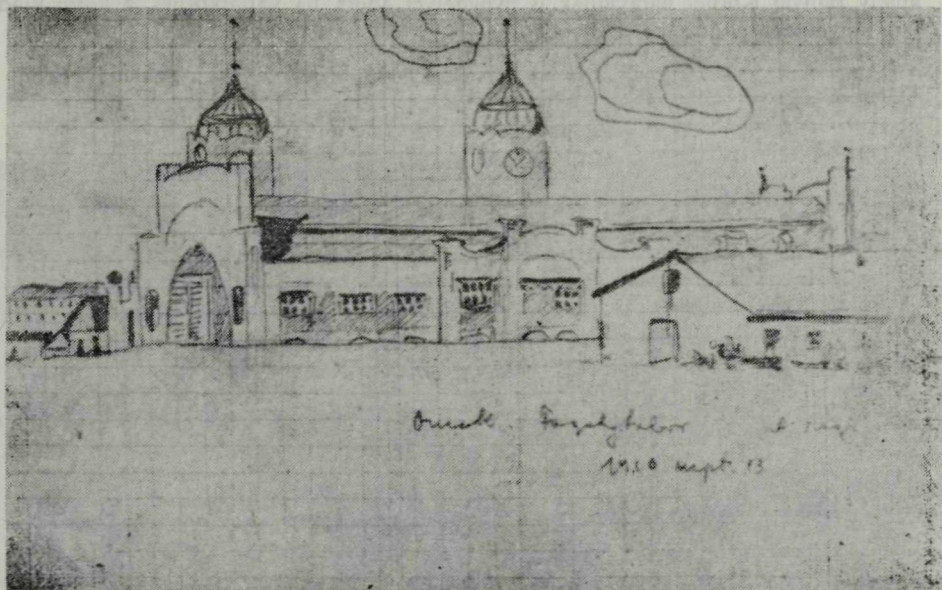 Omsk. Fogolytábor
1920 szept. 13